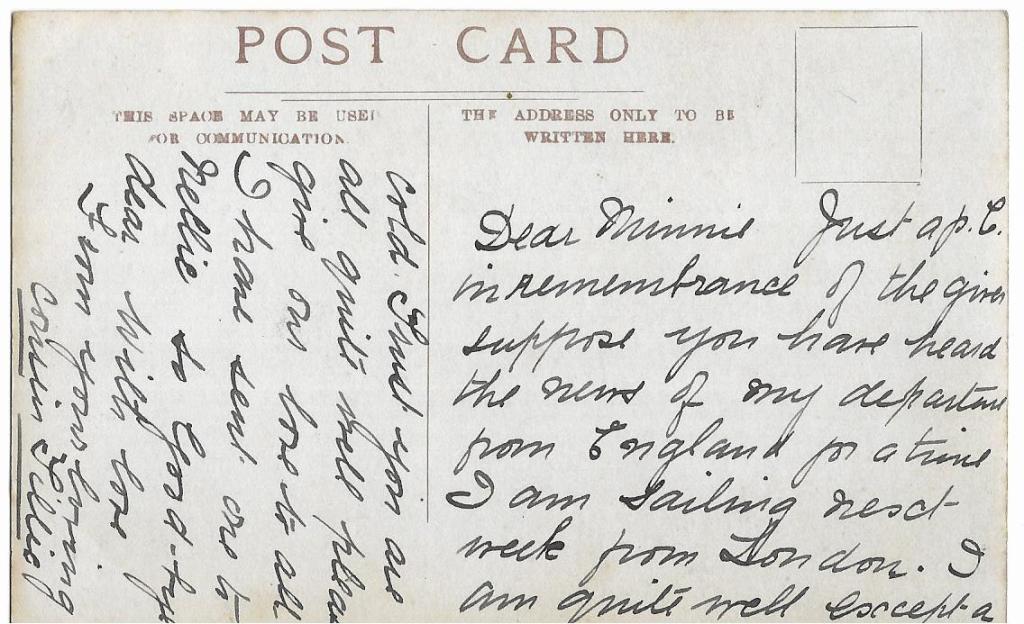 POST CARD
THIS SPACE MAY BE USED
FOR COMMUNICATION.
THE ADDRESS ONLY TO BE
WRITTEN HERE.
Dear Minnie Just a p.c.
in remembrance of the giver
suppose you have heard
the news of my departure
from England for a time
I am sailing next
week from London. I
am quite well except a
cold. Trust you are
all quite well please
give our love to all
I have sent one to
Nellie so Good-bye
dear With love
From your loving
Cousin Tillie